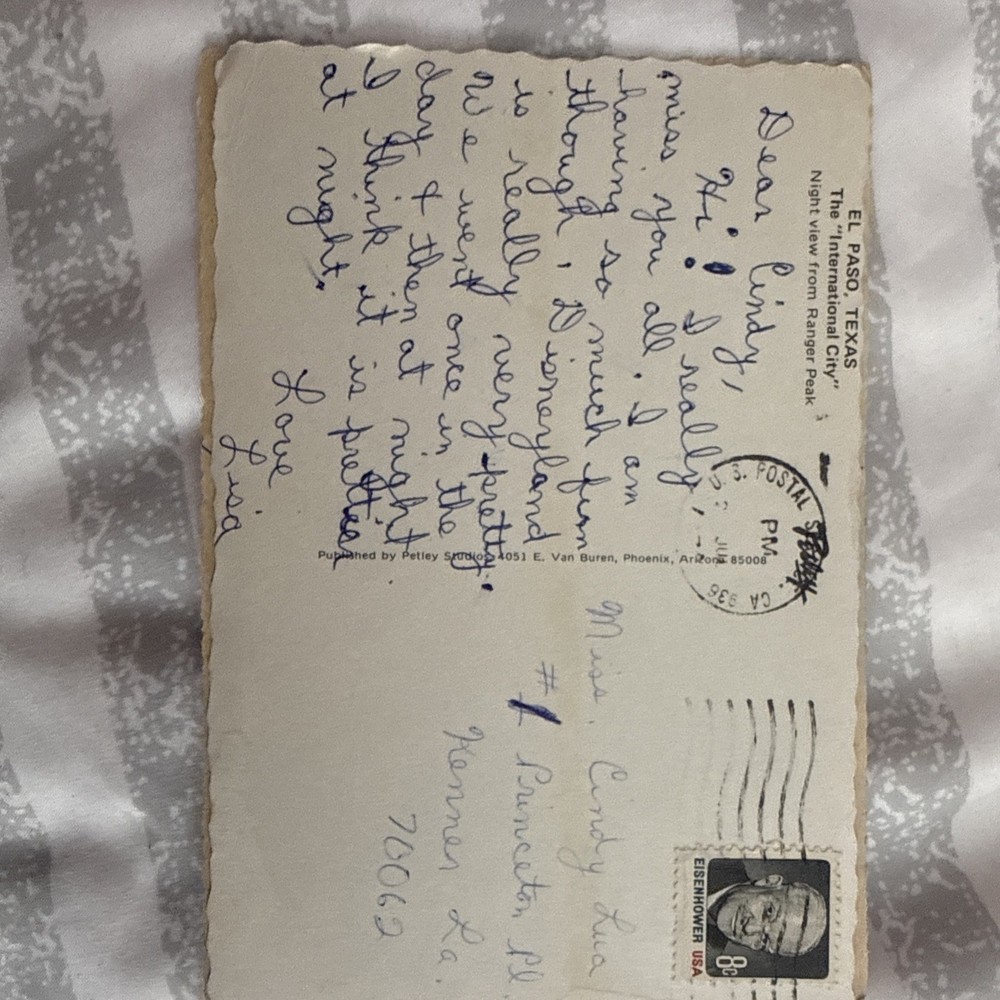 EL PASO, TEXAS
The "International City"
Night view from Ranger Peak
Dear Cindy,
Hi! I really
miss you all. I am
having so much fun
though. Disneyland
is really very pretty.
We went once in the
day & then at night
I think it is
at night.
Love
Lisa
Published by Petley Studios, 4051 E. Van Buren, Phoenix, Arizona 85008
U.S. POSTAL
PM
CA 936
Miss. Cindy Lua
#1 Princeton Pl.
Kenner La.
70062
EISENHOWER USA
8c